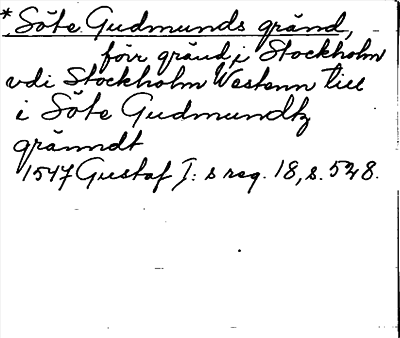 * Söte Gudmunds gränd,
förr gränd i Stockholm
vdi Stockholm Westenn till
i Söte Gudmundtz
gränndt
1547 Gustaf I: s reg. 18, s. 528.